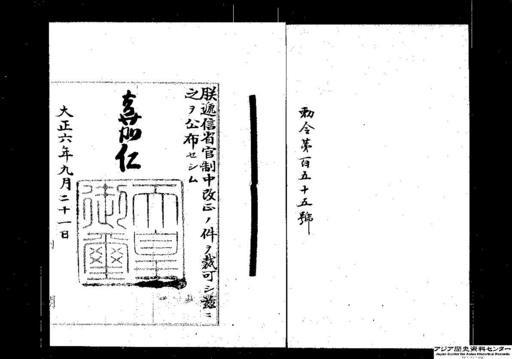 勅令第百五十五號
朕逓信省官制中改正ノ件ヲ裁可シ茲ニ
之ヲ公布セシム
嘉仁
天皇御璽
大正六年九月二十一日
アジア歴史資料センター
Japan Center for Asian Historical Records